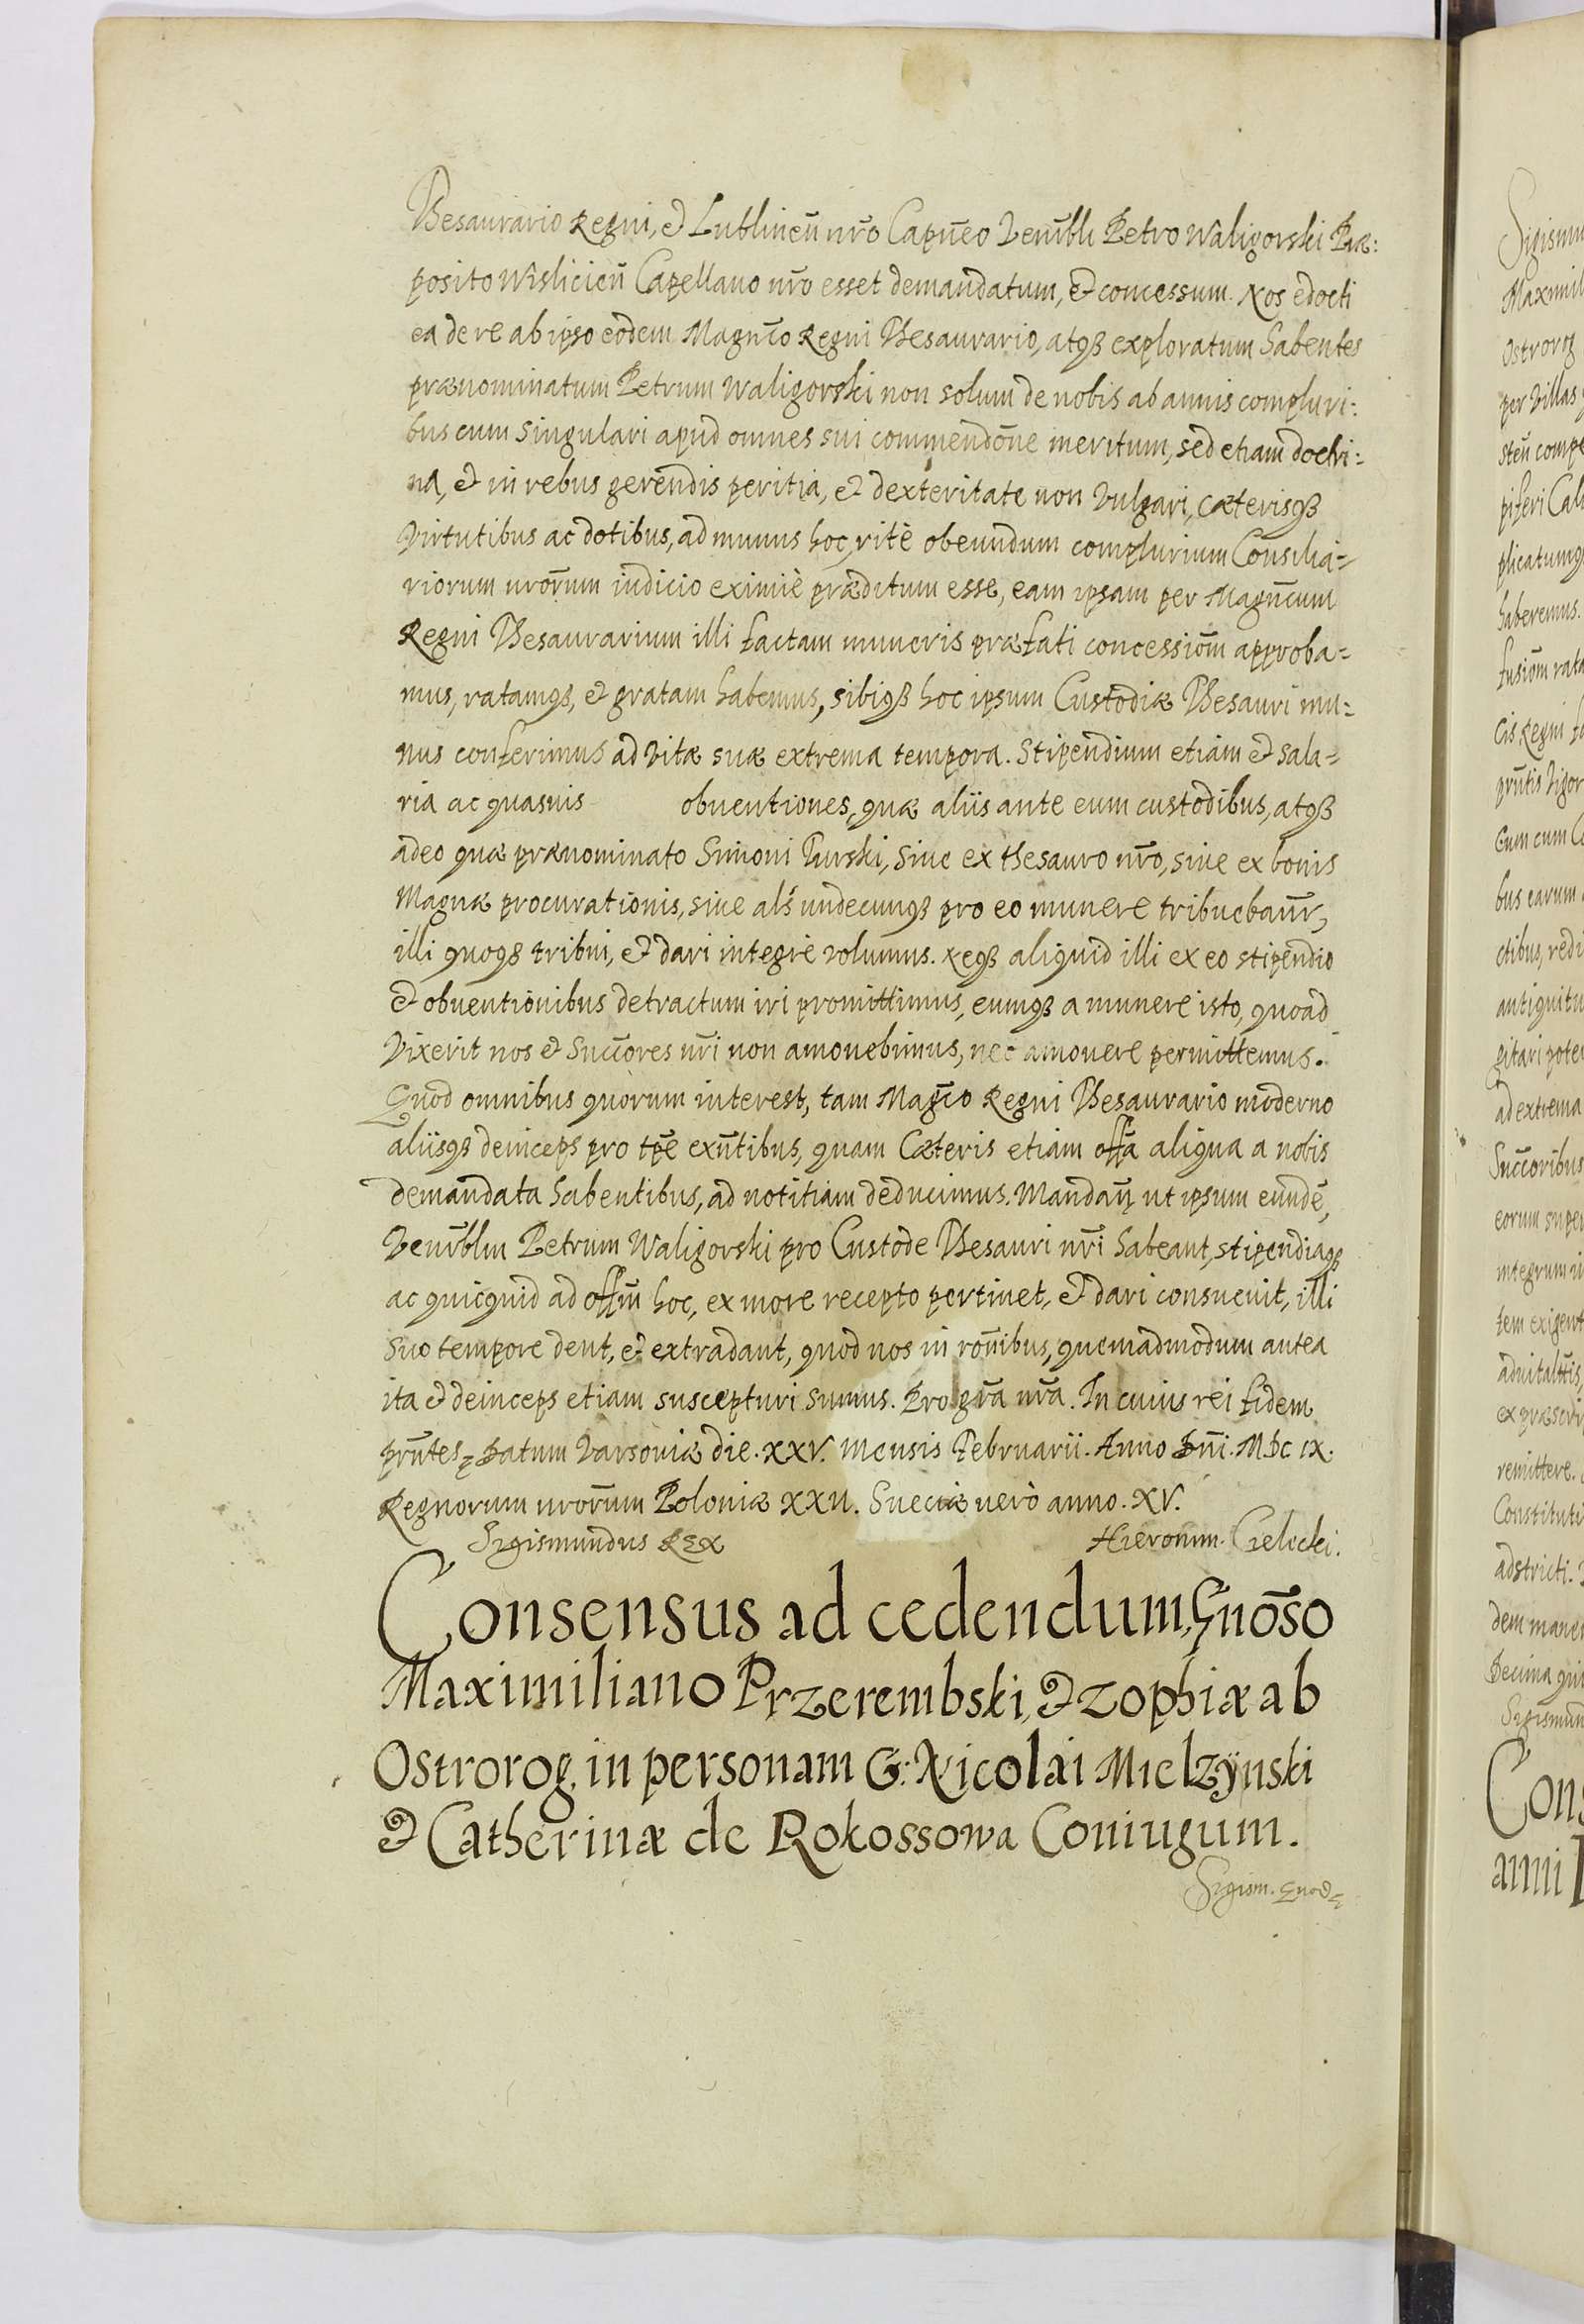 Thesaurario Regni, et Lublineñ nr̃o Capñeo Venr̃bli Petro Waligorski Præ:
posito Wisliceñ Capellano nr̃o esset demandatum, et concessum. Nos edocti
ea de re ab ipso eodem Magnc̃o Regni Thesaurario, atqꝫ exploratum habentes
prænominatum Petrum Waligorski non solum de nobis ab annis compluri:
bus cum singulari apud omnes sui commendõne meritum, sed etiam doctri:
na, et in rebus gerendis peritia, et dexteritate non vulgari, cæterisqꝫ
Virtutibus ac dotibus, ad munus hoc ritè obeundum complurium Consilia=
riorum nror̃um iudicio eximiè præditum esse, eam ipsam per Magñcum
Regni Thesaurarium illi factam muneris præfati concessiõm approba=
mus, ratamqꝫ, et gratam habemus, sibiqꝫ hoc ipsum Custodiæ Thesauri mu=
nus conferimus ad vitæ suæ extrema tempora. Stipendium etiam et sala=
ria ac quasuis obuentiones, quæ aliis ante eum custodibus, atqꝫ
adeo quæ prænominato Simoni Turski, siue ex thesauro nr̃o, siue ex bonis
Magnæ procurationis, siue als̃ undecunqꝫ pro eo munere tribuebañr,
illi quoqꝫ tribui, et dari integrè volumus. Neqꝫ aliquid illi ex eo stipendio
et obuentionibus detractum iri promittimus, eumqꝫ a munere isto, quoad
Vixerit nos et Succ̃ores nr̃i non amouebimus, nec amouere permittemus.
Quod omnibus quorum interest, tam Magc̃o Regni Thesaurario moderno
aliisqꝫ deinceps pro tp̃e exñtibus, quam Cæteris etiam offã aliqua a nobis
demandata habentibus, ad notitiam deducimus. Mandañ ut ipsum eundẽ,
Venr̃blm Petrum Waligorski pro Custode Thesauri nr̃i habeant, stipendiaqꝫ
ac quicquid ad offm̃ hoc, ex more recepto pertinet, et dari consueuit, illi
suo tempore dent, et extradant, quod nos in roñibus, quemadmodum antea
ita et deinceps etiam suscepturi sumus. Pro gr̃a nr̃a. In cuius rei fidem
prñtes. Datum Varsoviæ die. XXV. mensis Februarii. Anno Dñi. MDC IX.
Regnorum nror̃um Poloniæ XXII. Sueciæ uerò anno. XV.
Sigismundus Rex Hieronim. Cielecki.
Consensus ad cedendum, Gnõso
Maximiliano Przerembski, et Zophiæ ab
Ostrorog, in personam G: Nicolai Mielzÿnski
et Catherinæ de Rokossowa Coniugum.
Sigism. Quod

Sigismu
Maximil
Ostrorog
per Villas
steñ compe
piferi Cal
plicatumq
haberemus.
fusiõm rata
cis Regni fa
prñtis Vigor
Eum cum C
bus earum
ctibus, redi
antiquitu
gitari poter
ad extrema
Succ̃oribus
eorum super
integrum i
tem exigent
aduitaltt̃is
ex præscri
remittere.
Constituti
adstricti.
dem mane
Decima qui
Sigismun
Cons
anni